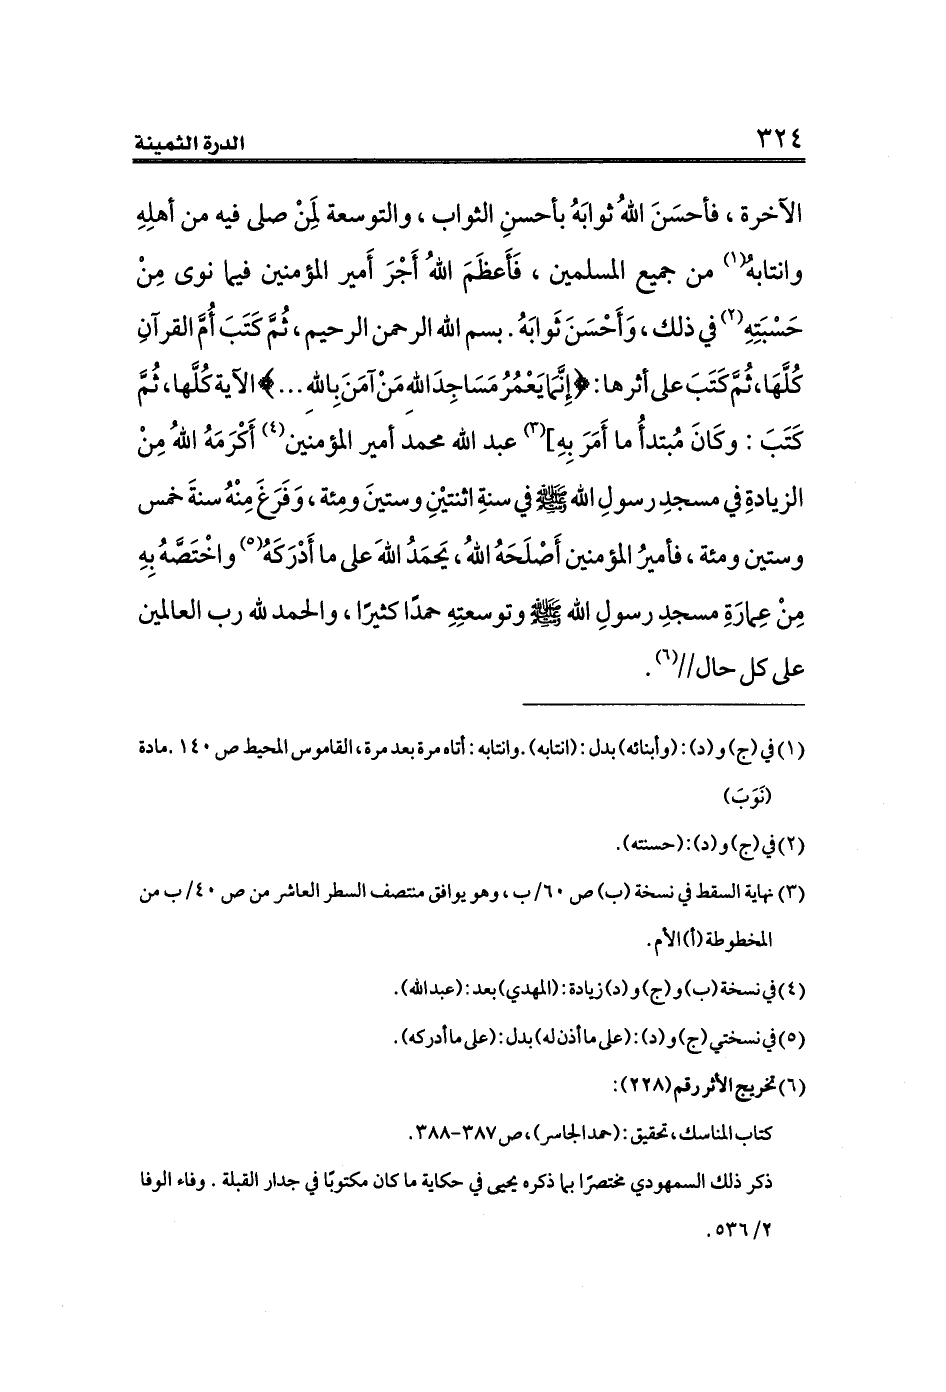 ٣٢٤ الدرة الثمينة
الآخرة ، فأحسَنَ اللهُ ثوابَهُ بأحسنِ الثواب ، والتوسعة لِمَنْ صلى فيه من أهلِهِ
وانتابهُ(١) من جميع المسلمين ، فَأَعظَمَ اللهُ أَجْرَ أَمير المؤمنين فيما نوى مِنْ
حَسْبَتِهِ(٢) في ذلك ، وَأَحْسَنَ ثَوابَهُ . بسم الله الرحمن الرحيم ، ثُمَّ كَتَبَ أُمَّ القرآنِ
كُلَّهَا، ثُمَّ كَتَبَ على أثرها : ﴿إِنَّمَا يَعْمُرُ مَسَاجِدَ اللهِ مَنْ آمَنَ بِاللهِ ...﴾ الآية كُلَّها ، ثُمَّ
كَتَبَ : وكَانَ مُبتدأُ ما أَمَرَ بِهِ](٣) عبد الله محمد أمير المؤمنين(٤) أَكْرَمَهُ اللهُ مِنْ
الزيادةِ في مسجدِ رسولِ الله ﷺ في سنةِ اثنتيْنِ وستينَ ومئة ، وَفَرَغَ مِنْهُ سنةَ خمس
وستين ومئة ، فأميرُ المؤمنين أَصْلَحَهُ اللهُ ، يَحمَدُ اللهَ على ما أَدْرَكَهُ(٥) واخْتَصَّهُ بِهِ
مِنْ عِمارَةِ مسجدِ رسولِ الله ﷺ وتوسعتِهِ حمدًا كثيرًا ، والحمد لله رب العالمين
على كل حال//(٦) .
(١) في (ج) و(د) : (وأبنائه) بدل : (انتابه) . وانتابه : أتاه مرة بعد مرة ، القاموس المحيط ص ١٤٠ . مادة
(نَوَبَ)
(٢) في (ج) و(د) : (حسنته).
(٣) نهاية السقط في نسخة (ب) ص ٦٠/ ب ، وهو يوافق منتصف السطر العاشر من ص ٤٠/ ب من
المخطوطة (أ) الأم.
(٤) في نسخة (ب) و(ج) و(د) زيادة : (المهدي) بعد : (عبد الله).
(٥) في نسختي (ج) و(د) : (على ما أذن له) بدل : (على ما أدركه).
(٦) تخريج الأثر رقم (٢٢٨) :
كتاب المناسك ، تحقيق : (حمد الجاسر) ، ص ٣٨٧-٣٨٨.
ذكر ذلك السمهودي مختصرًا بما ذكره يحيى في حكاية ما كان مكتوبًا في جدار القبلة . وفاء الوفا
٢/ ٥٣٦ .